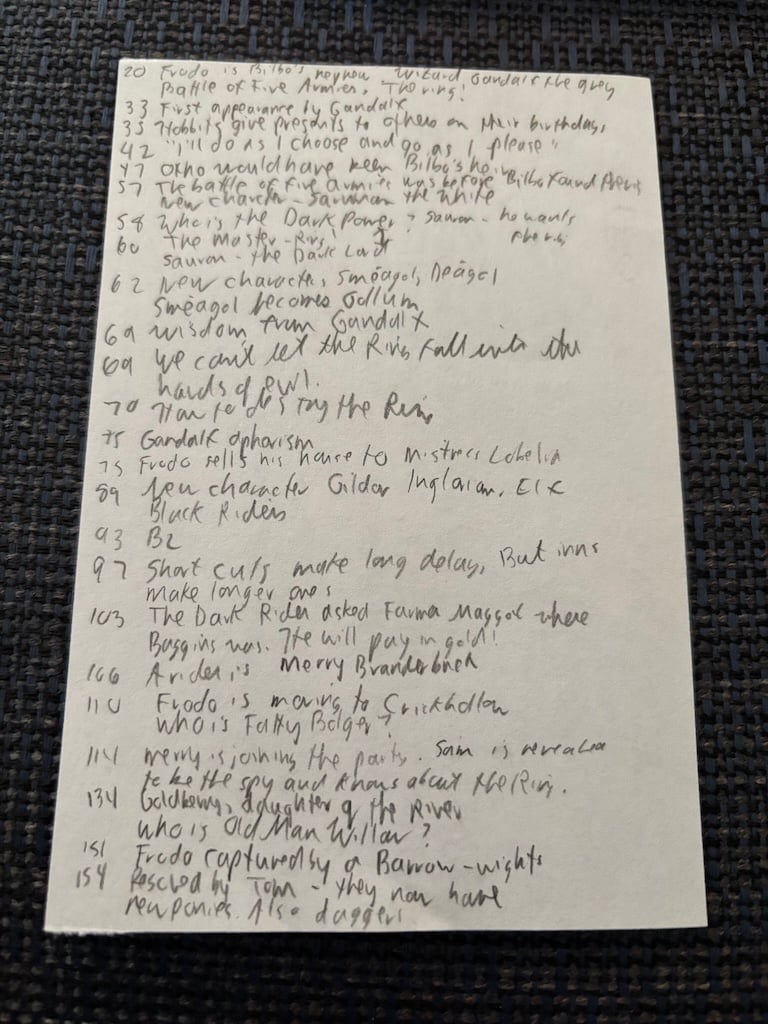 20 Frodo is Bilbo's nephew Wizard, Gandalf the grey
Battle of Five Armies, The ring!
33 First appearance by Gandalf
35 Hobbits give presents to others on their birthdays,
42 "I'll do as I choose and go as I please"
47 Otho would have been Bilbo's heir
57 The battle of Five Armies was before Bilbo found the ring
New character - Saruman the White
58 Who is the Dark Power? Sauron - he wants
the ring
60 The Master-Ring!
Sauron - the Dark Lord
62 New character, Sméagol, Déagol
Sméagol becomes Gollum
69 wisdom from Gandalf
69 We can't let the Ring fall into the
hands of evil.
70 How to destroy the Ring
75 Gandalf aphorism
75 Frodo sells his house to Mistress Lobelia
89 New character Gildor Inglorian, Elf
Black Riders
93 B2
97 Short cuts make long delay, But inns
make longer ones
103 The Dark Rider asked Farma Maggot where
Baggins was. He will pay in gold!
106 A rider is Merry Branderbuck
110 Frodo is moving to Crickhollow
Who is Fatty Bolger?
114 merry is joining the party. Sam is revealed
to be the spy and knows about the Ring.
134 Goldberry, daughter of the River
Who is Old Man Willow?
151 Frodo captured by a Barrow-wights
154 Rescued by Tom - they now have
new ponies. Also daggers